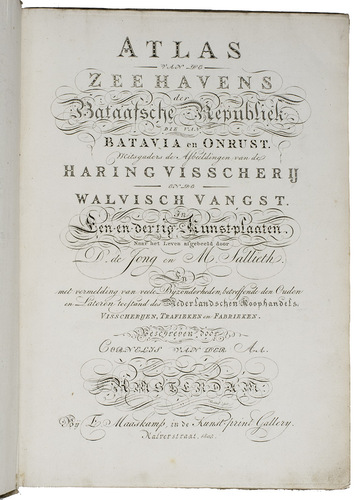 ATLAS
VAN DE
ZEEHAVENS
der
Bataafsche Republiek
DIE VAN
BATAVIA en ONRUST.
Mitsgaders de Afbeeldingen van de
HARING VISSCHERIJ
EN DE
WALVISCH VANGST.
In
Een-en-dertig Kunstplaaten.
Naar het Leven afgebeeld door
D. de Jong en M. Sallieth.
En
met vermelding van veele Byzonderheden, betreffende den Ouden
en Lateren toestand des Nederlandschen Koophandels,
VISSCHERIJEN, TRAFIEKEN en FABRIEKEN.
Beschreven door
CORNELIS VAN DER AA.
AMSTERDAM.
By E. Maaskamp, in de Kunst-print Gallery.
Kalverstraat,